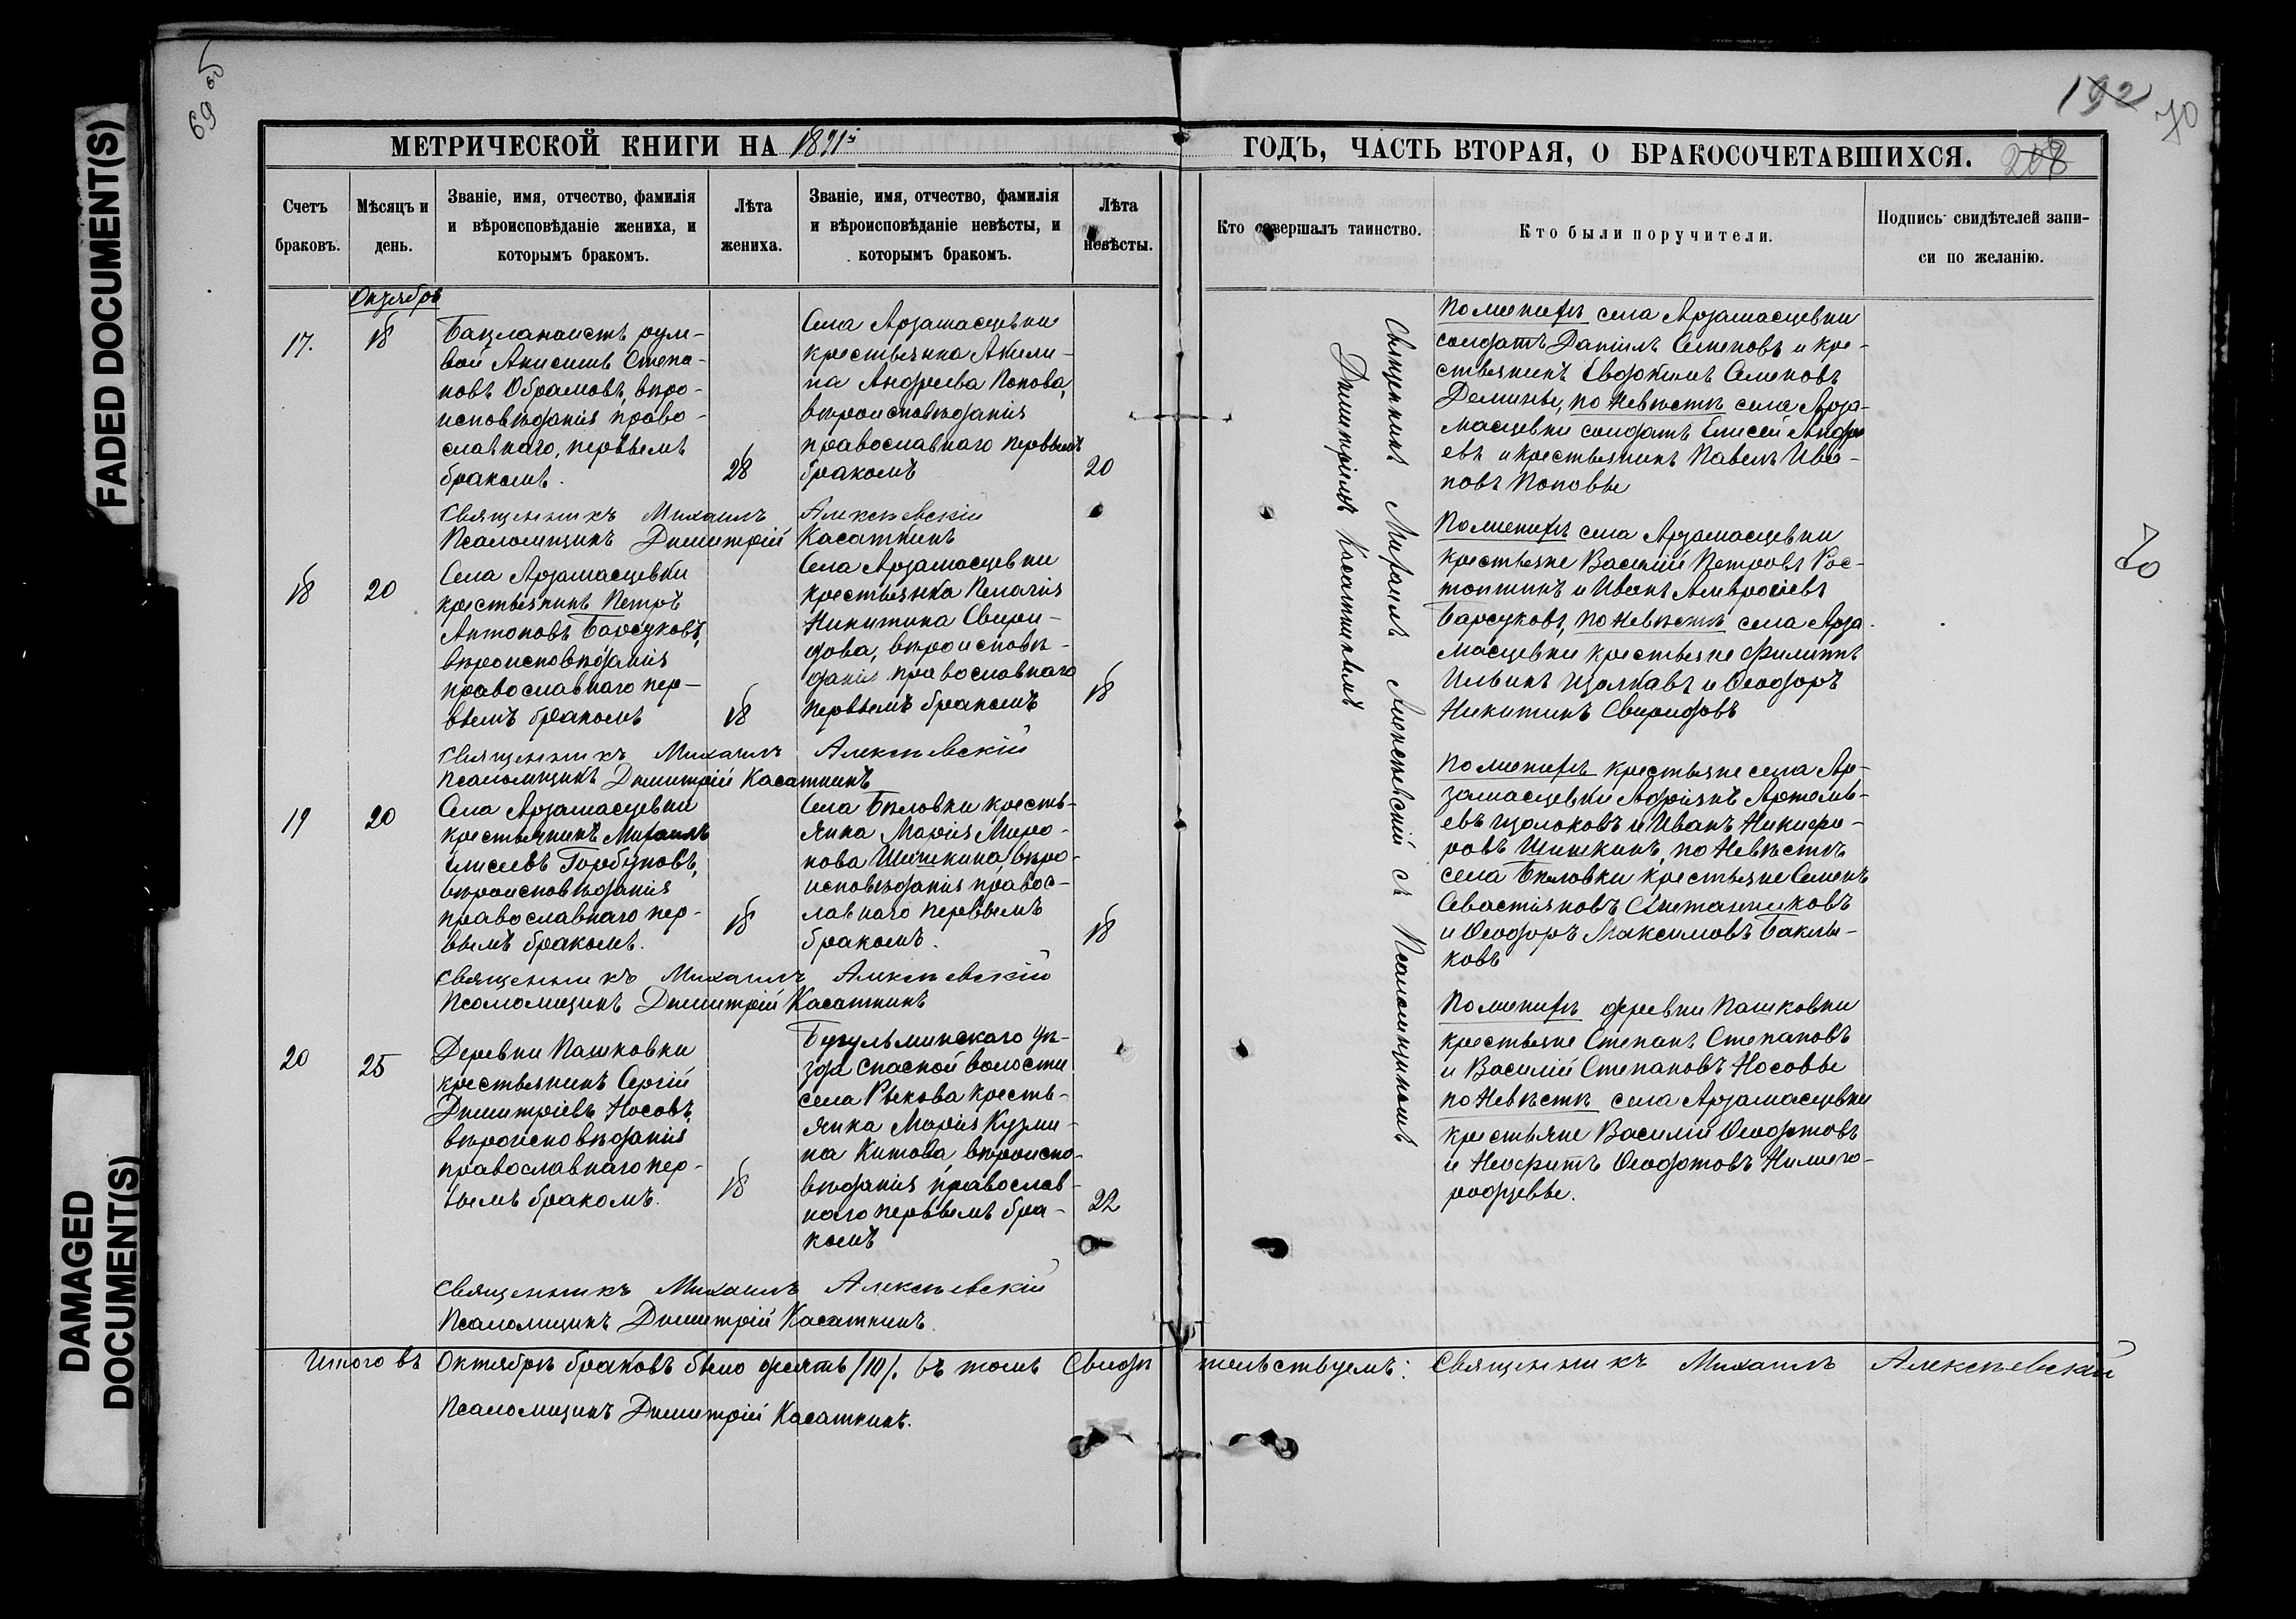 FADED DOCUMENT(S)
DAMAGED DOCUMENT(S)
69 об
192
70
208
70
МЕТРИЧЕСКОЙ КНИГИ НА 1891й ГОДЪ, ЧАСТЬ ВТОРАЯ, О БРАКОСОЧЕТАВШИХСЯ.
Счетъ браковъ.
Мѣсяцъ и день.
Званіе, имя, отчество, фамилія
и вѣроисповѣданіе жениха, и
которымъ бракомъ.
Лѣта
жениха.
Званіе, имя, отчество, фамилія
и вѣроисповѣданіе невѣсты, и
которымъ бракомъ.
Лѣта
невѣсты.
Кто совершалъ таинство.
Кто были поручители.
Подпись свидѣтелей запи-
си по желанію.
Октябрь
17.
18
вой Анисимъ Степа-
новъ Обрамовъ, вѣро-
исповѣданія право-
славнаго, первымъ
бракомъ.
28
Села Арзамасцевки
крестьянка Акили-
на Андреева Попова,
вѣроисповѣданія
православнаго первымъ
бракомъ
20
По женихѣ села Арзамасцевки
солдатъ Даніилъ Семеновъ и кре-
стьянинъ Евдокимъ Семеновъ
Демины, по невѣстѣ села Арза-
масцевки солдатъ Елисей Андре
евъ и крестьянинъ Павелъ Ива-
новъ Поповы
Священникъ Михаилъ Алексѣевскій
Псаломщикъ Димитрій Касаткинъ
18
20
Села Арзамасцевки
крестьянинъ Петръ
Антоновъ Барсуковъ,
вѣроисповѣданія
православнаго пер-
вымъ бракомъ
18
Села Арзамасцевки
крестьянка Пелагія
Никитина Свири-
дова, вѣроисповѣ-
данія православнаго
первымъ бракомъ
18
По женихѣ села Арзамасцевки
крестьяне Василій Петровъ Рос-
топшинъ и Иванъ Амвросіевъ
Барсуковъ, по невѣстѣ села Арза-
масцевки крестьяне Филиппъ
Ильинъ и Ѳеодоръ
Никитинъ Свиридовъ
Священникъ Михаилъ Алексѣевскій
Псаломщикъ Димитрій Касаткинъ
19
20
Села Арзамасцевки
крестьянинъ Михаилъ
Елисеевъ Горбуновъ,
вѣроисповѣданія
православнаго пер-
вымъ бракомъ.
18
Села Бѣловки кресть-
янка Марія Миро-
нова Шишкина вѣро-
исповѣданія правос-
лавнаго первымъ
бракомъ.
18
По женихѣ крестьяне села Ар-
замасцевки Адріянъ Артемь-
евъ Щолоковъ и Иванъ Никифо-
ровъ Шишкинъ, по невѣстѣ
села Бѣловки крестьяне Семенъ
Севастіяновъ Сметанниковъ
и Ѳеодоръ Максимовъ Баклы-
ковъ
Священникъ Михаилъ Алексѣевскій
Псаломщикъ Димитрій Касаткинъ
20
25
Деревни Пашковки
крестьянинъ Сергій
Димитріевъ Носовъ,
вѣроисповѣданія
православнаго пер-
вымъ бракомъ.
18
Бугульминскаго уѣ-
зда Спаской волости
села Рыкова кресть-
янка Марія Кузми-
на Китова, вѣроиспо-
вѣданія православ-
наго первымъ бра-
комъ
22
По женихѣ деревни Пашковки
крестьяне Степанъ Степановъ
и Василій Степановъ Носовы
по невѣстѣ села Арзамасцевки
крестьяне Василій Ѳеодотовъ
и Неофитъ Ѳеодотовъ Нижего-
родцевы.
Священникъ Михаилъ Алексѣевскій
Псаломщикъ Димитрій Касаткинъ.
Священникъ Михаилъ Алексѣевскій съ Псаломщикомъ
Димитріемъ Касаткинымъ
Итого въ Октябрѣ браковъ было десять /10/. въ томъ Свидѣтельствуемъ: Священникъ Михаилъ Алексѣевскій
Псаломщикъ Димитрій Касаткинъ.